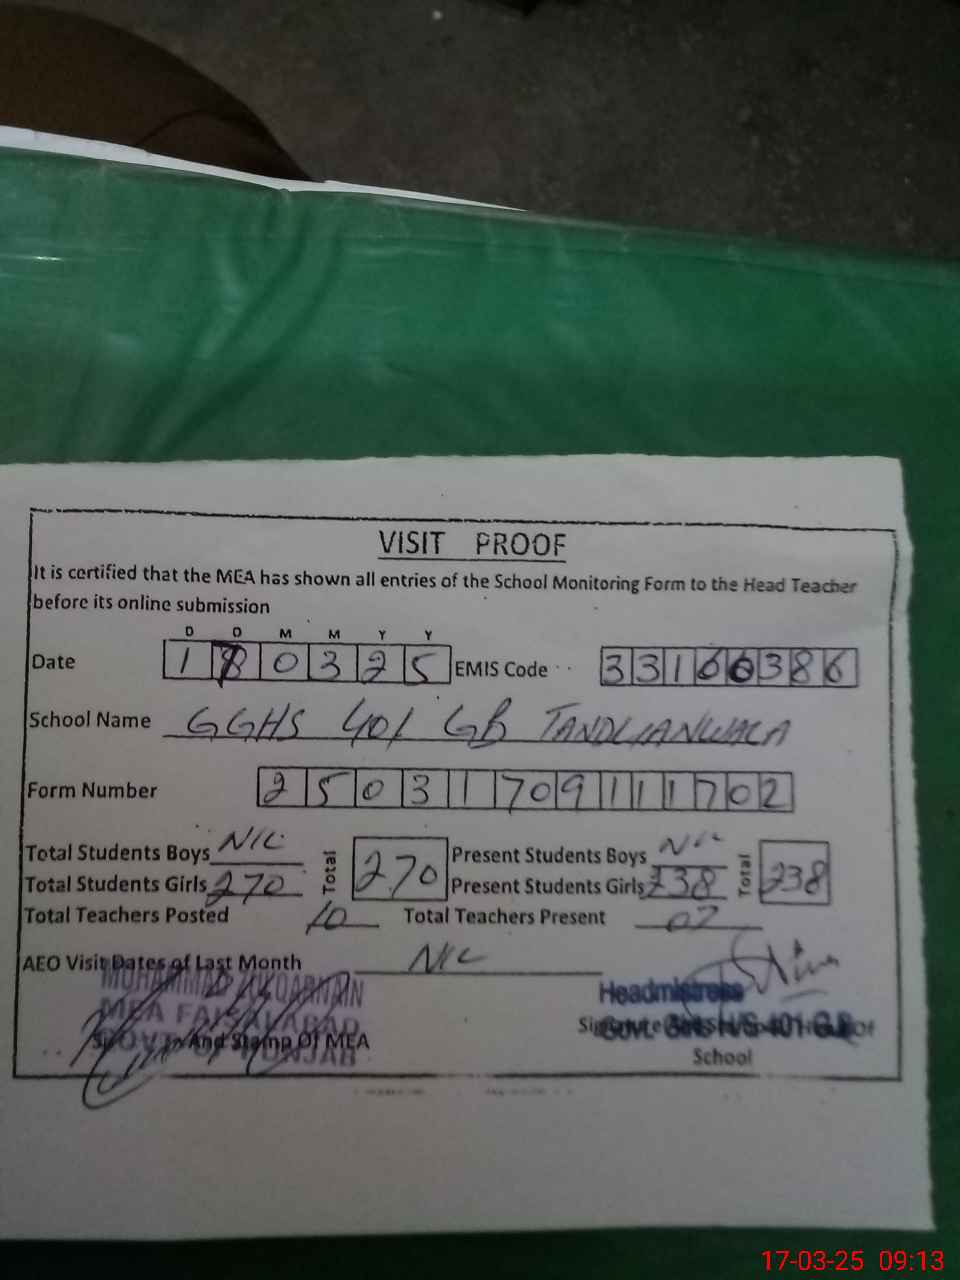 VISIT PROOF
It is certified that the MEA has shown all entries of the School Monitoring Form to the Head Teacher
before its online submission
D D M M Y Y
Date 1 0 3 2 5 EMIS Code 3 3 1 6 0 3 8 6
School Name GGHS 401 GB TANDLIANWALA
Form Number 2 5 0 3 1 7 0 9 1 1 1 7 0 2
Total Students Boys NIL Total 270 Present Students Boys NIL Total 238
Total Students Girls 270 Present Students Girls 238
Total Teachers Posted 10 Total Teachers Present 07
AEO Visit Dates of Last Month NIL
MUHAMMAD ZULQARNAIN
MEA FAISALABAD
GOVT OF PUNJAB
And Stamp Of MEA
Headmistress
Govt. Girls H/S 401 G.B
School
17-03-25 09:13